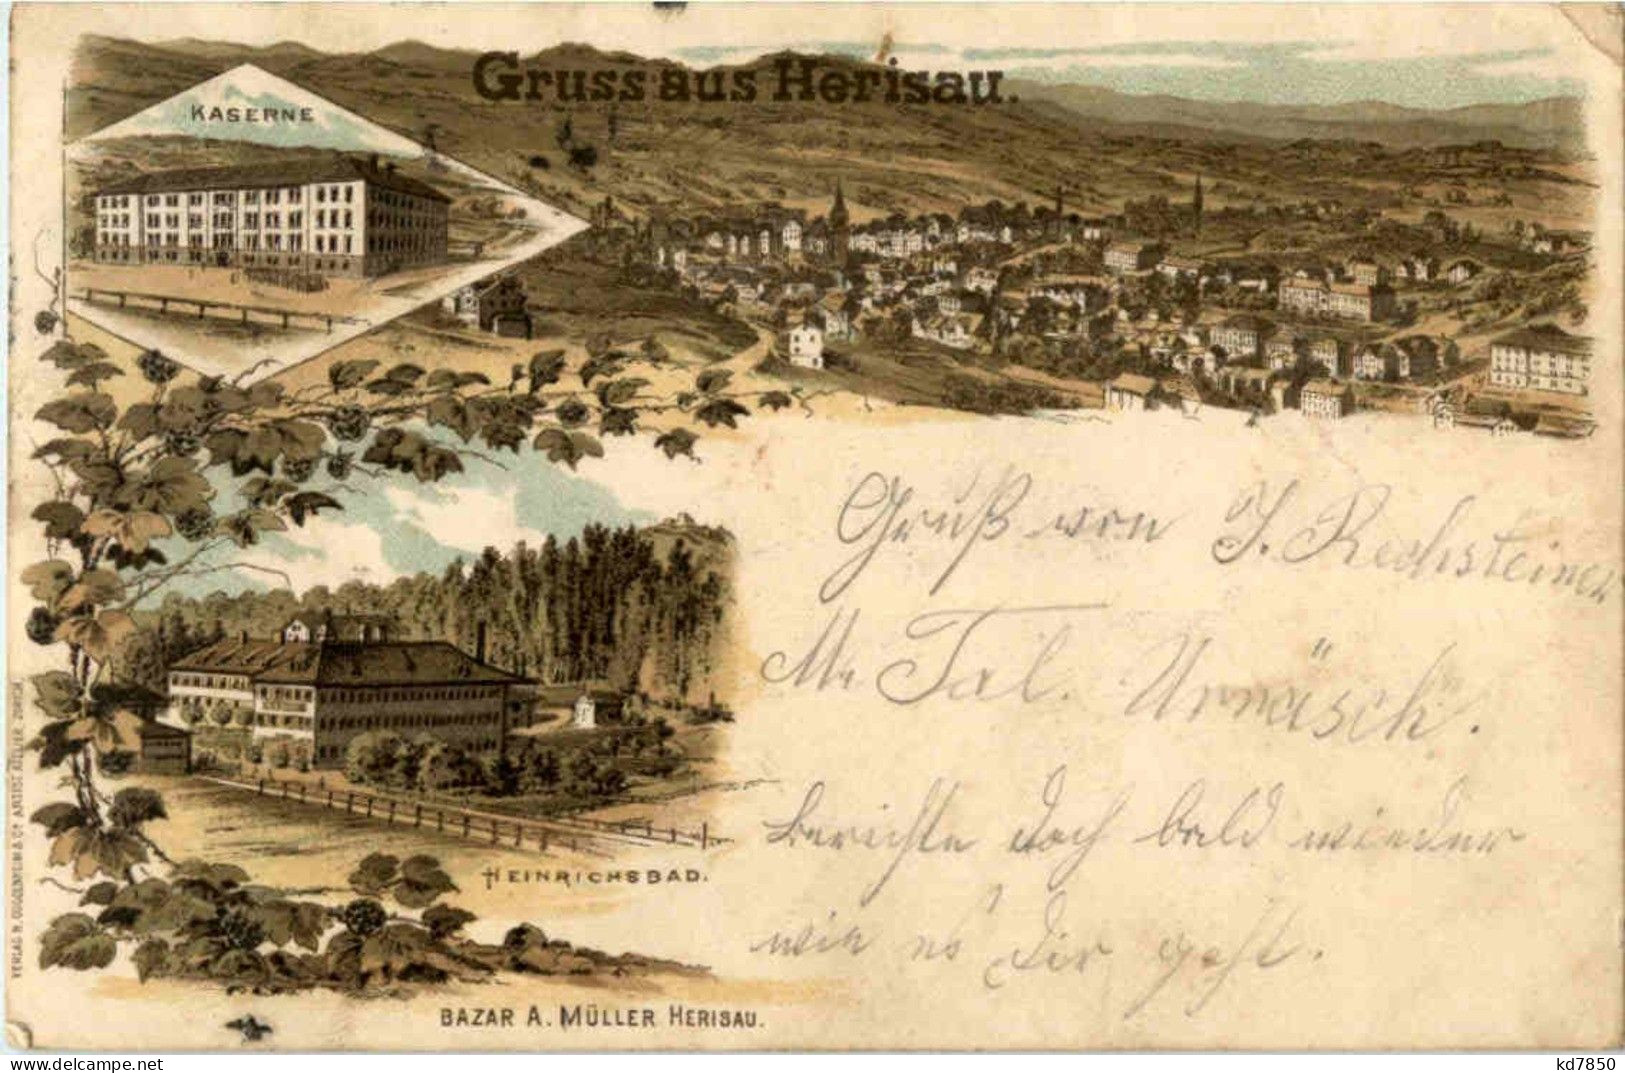 Gruss aus Herisau.
KASERNE
Gruß von J. Rechsteiner
Mr Tal. Urnäsch.
berichte doch bald wieder
wie es Dir geht.
HEINRICHSBAD.
BAZAR A. MÜLLER HERISAU.
VERLAG H. GUGGENHEIM & Cº ARTIST. ATELIER ZÜRICH
delcampe.net
kd7850